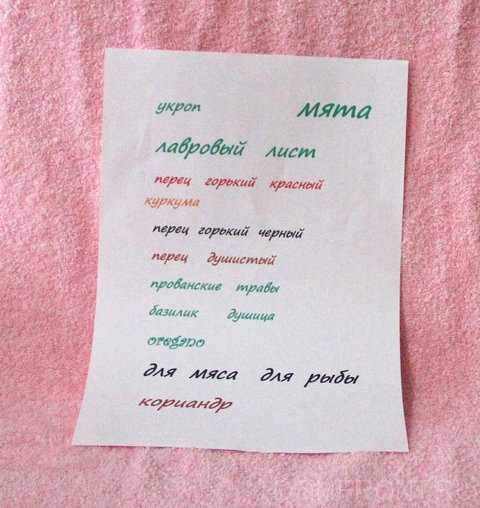 укроп мята
лавровый лист
перец горький красный
куркума
перец горький черный
перец душистый
прованские травы
базилик душица
oregano
для мяса для рыбы
кориандр